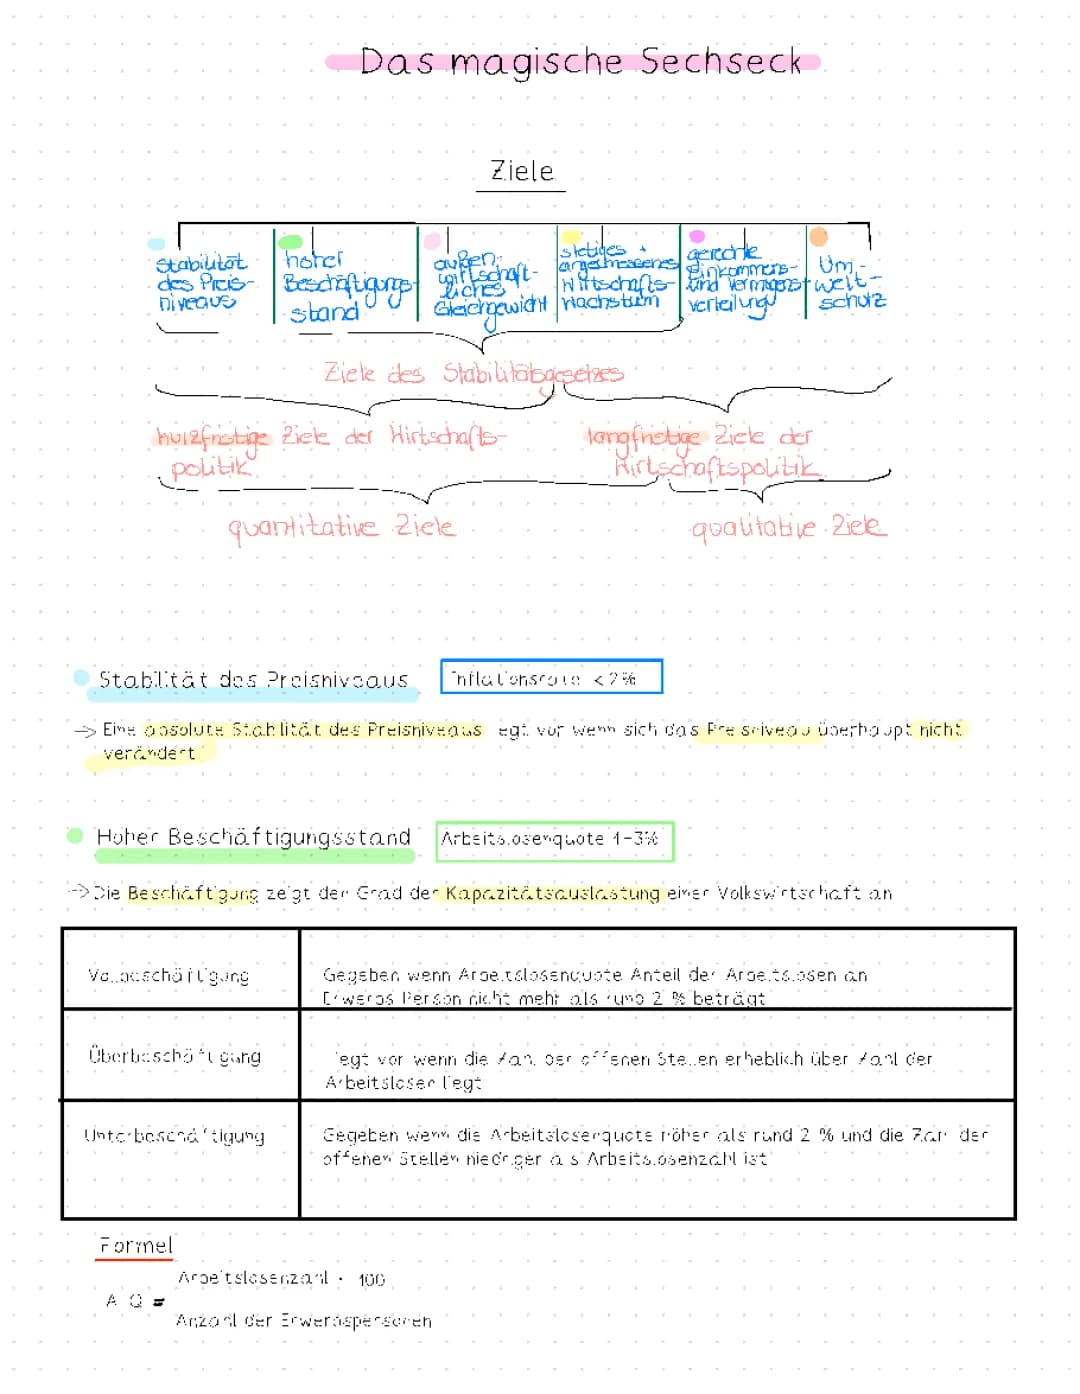 Das magische Sechseck
Ziele
Stabilität
des Preis-
niveaus
hoher
Beschäftigungs-
stand
außen-
wirtschaft-
liches
Gleichgewicht
stetiges +
angemessenes
Wirtschafts-
wachstum
gerechte
Einkommens-
und Vermögens-
verteilung
Um-
welt-
schutz
Ziele des Stabilitätsgesetzes
kurzfristige Ziele der Wirtschafts-
politik
langfristige Ziele der
Wirtschaftspolitik
quantitative Ziele
qualitative Ziele
Stabilität des Preisniveaus
Inflationsrate < 2%
→ Eine absolute Stabilität des Preisniveaus liegt vor wenn sich das Preisniveau überhaupt nicht
verändert
Hoher Beschäftigungsstand
Arbeitslosenquote 1-3%
→ Die Beschäftigung zeigt den Grad der Kapazitätsauslastung einer Volkswirtschaft an
Vollbeschäftigung
Gegeben wenn Arbeitslosenquote Anteil der Arbeitslosen an
Erwerbs Person nicht mehr als rund 2 % beträgt
Überbeschäftigung
liegt vor wenn die Zahl der offenen Stellen erheblich über Zahl der
Arbeitslosen liegt
Unterbeschäftigung
Gegeben wenn die Arbeitslosenquote höher als rund 2 % und die Zahl der
offenen Stellen niedriger als Arbeitslosenzahl ist
Formel
Arbeitslosenzahl · 100
A Q =
Anzahl der Erwerbspersonen